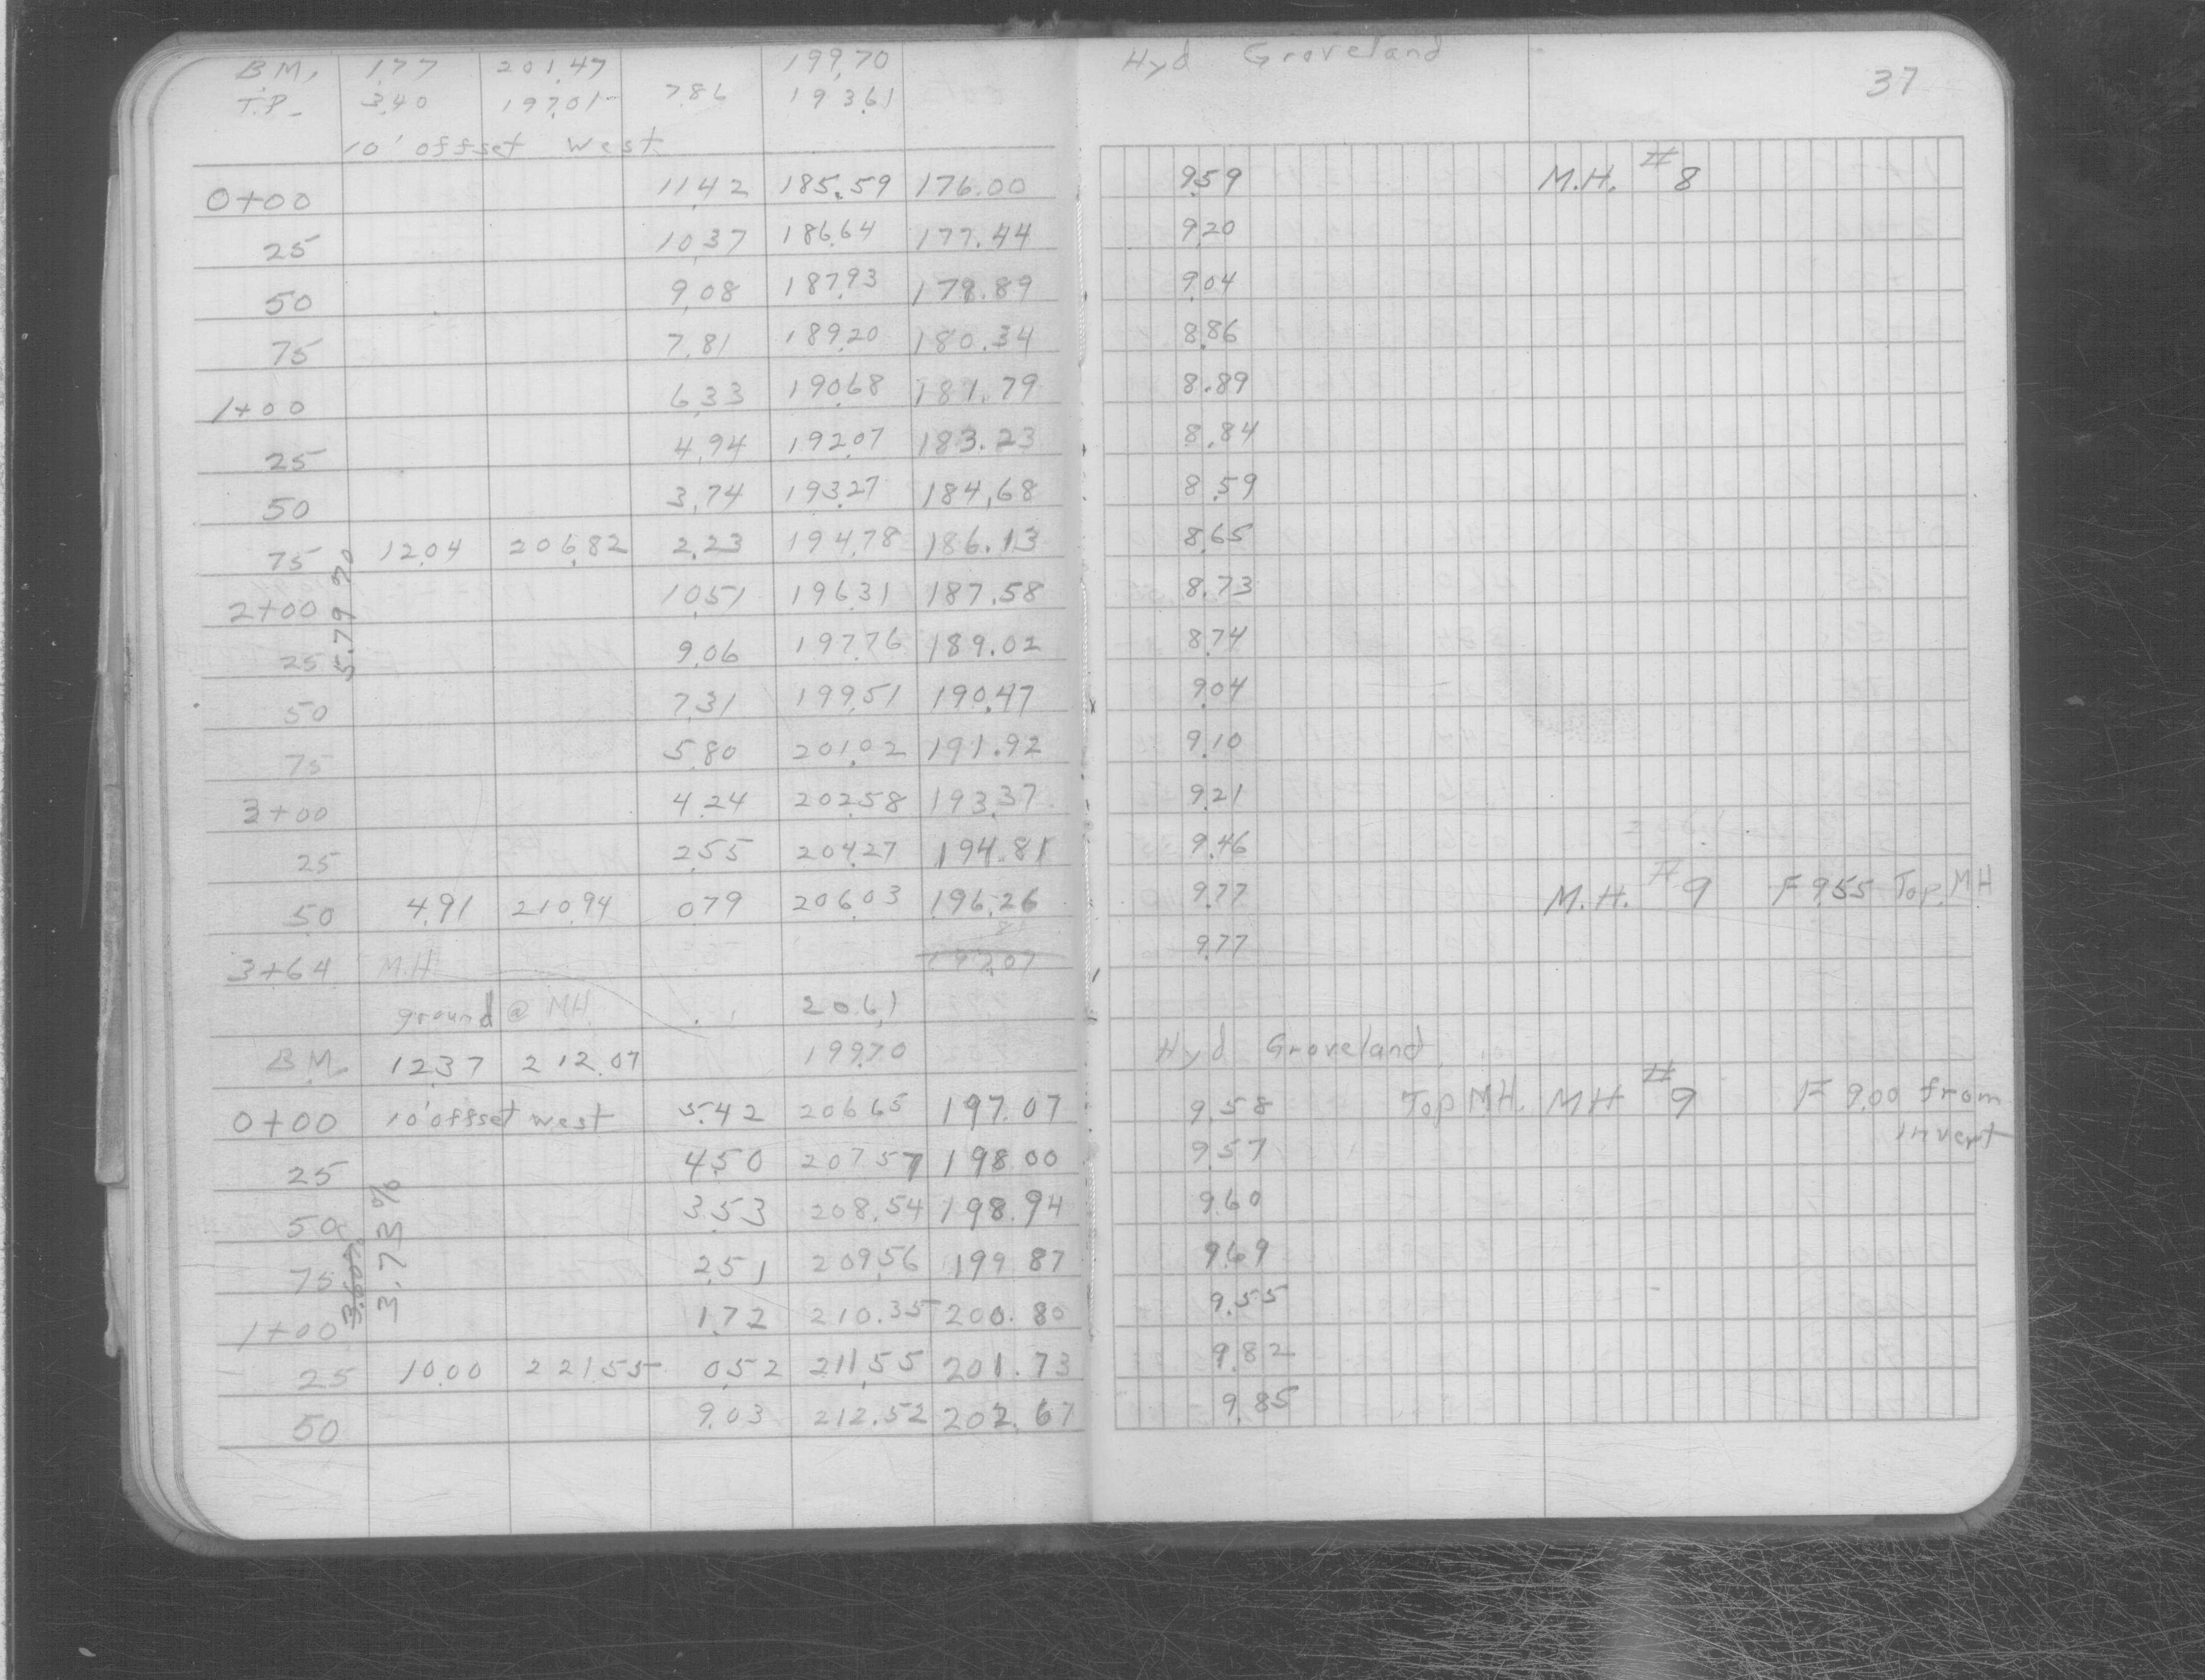 B.M. 1.77 201.47 199.70 Hyd Groveland
37
T.P. 3.40 197.01 7.86 193.61
10' offset west
0+00 11.42 185.59 176.00 9.59 M.H. #8
25 10.37 186.64 177.44 9.20
50 9.08 187.93 178.89 9.04
75 7.81 189.20 180.34 8.86
1+00 6.33 190.68 181.79 8.89
25 4.94 192.07 183.23 8.84
50 3.74 193.27 184.68 8.59
75 12.04 206.82 2.23 194.78 186.13 8.65
5.79 %
2+00 10.51 196.31 187.58 8.73
25 9.06 197.76 189.02 8.74
50 7.31 199.51 190.47 9.04
75 5.80 201.02 191.92 9.10
3+00 4.24 202.58 193.37 9.21
25 2.55 204.27 194.81 9.46
50 4.91 210.94 0.79 206.03 196.26 9.77 M.H. #9 F 9.55 Top M.H.
3+64 M.H. 197.07 9.77
ground @ MH. 206.1
B.M. 12.37 212.07 199.70 Hyd Groveland
0+00 10' offset west 5.42 206.65 197.07 9.58 Top MH. MH #9 F 9.00 from
invert
25 4.50 207.57 198.00 9.57
50 3.53 208.54 198.94 9.60
3.73 %
75 2.51 209.56 199.87 9.69
1+00 1.72 210.35 200.80 9.55
25 10.00 221.55 0.52 211.55 201.73 9.82
50 9.03 212.52 202.67 9.85